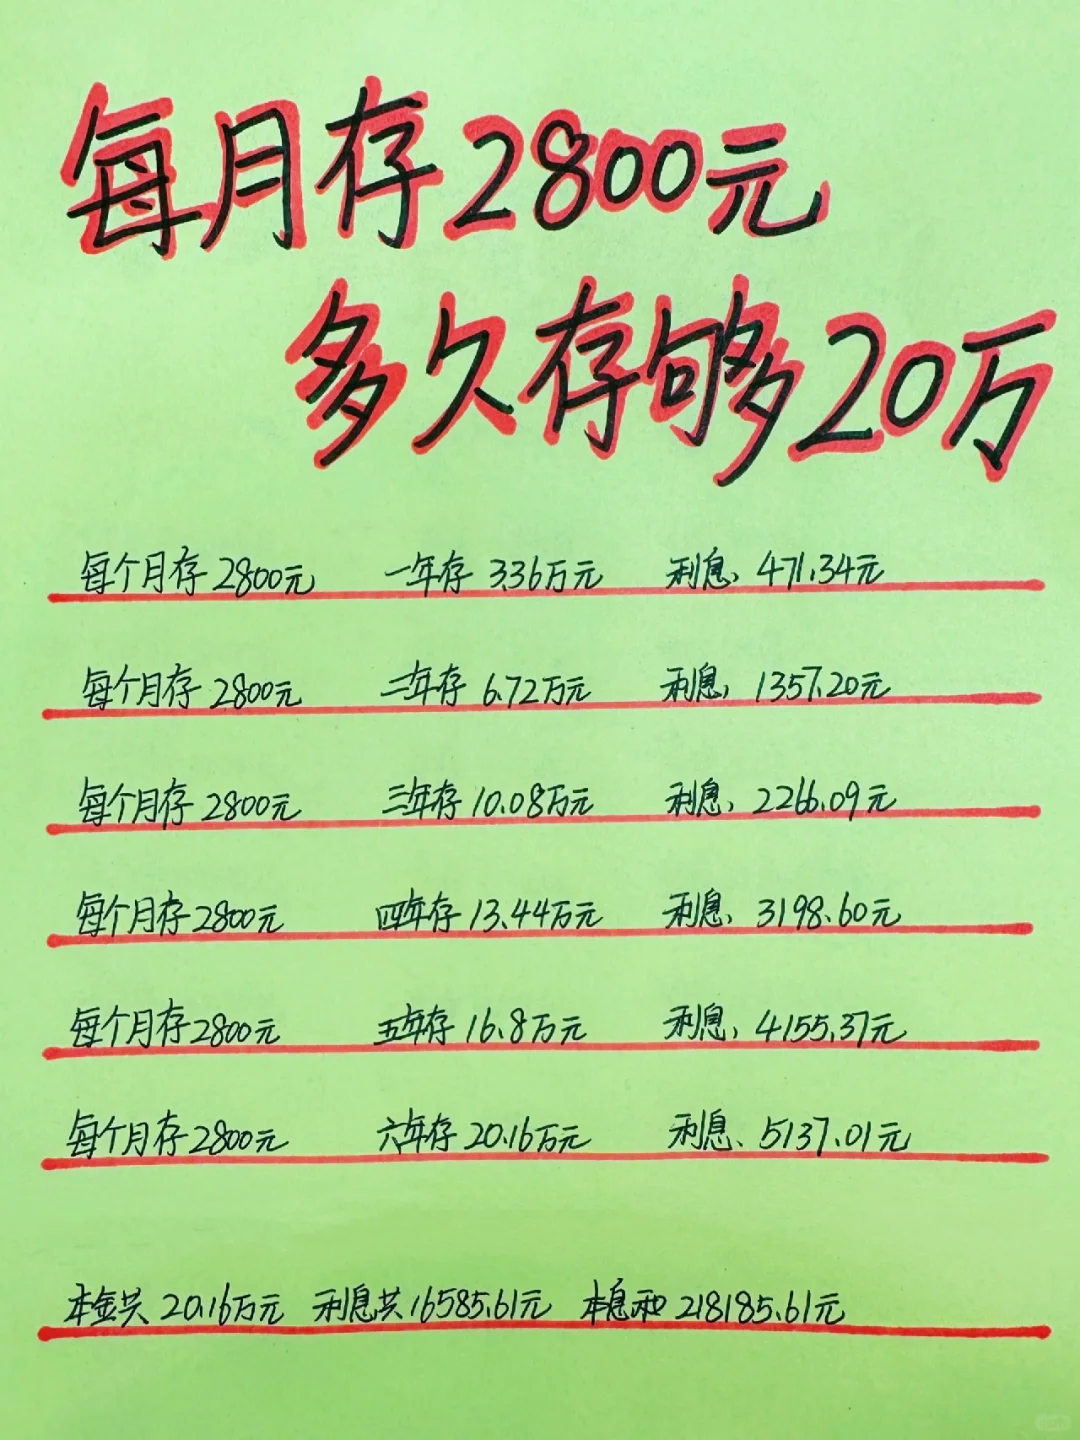 每月存2800元
多久存够20万
每个月存2800元 一年存3.36万元 利息:471.34元
每个月存2800元 二年存6.72万元 利息:1357.20元
每个月存2800元 三年存10.08万元 利息:2266.09元
每个月存2800元 四年存13.44万元 利息:3198.60元
每个月存2800元 五年存16.8万元 利息:4155.37元
每个月存2800元 六年存20.16万元 利息:5137.01元
本金共20.16万元 利息共16585.61元 本息和218185.61元